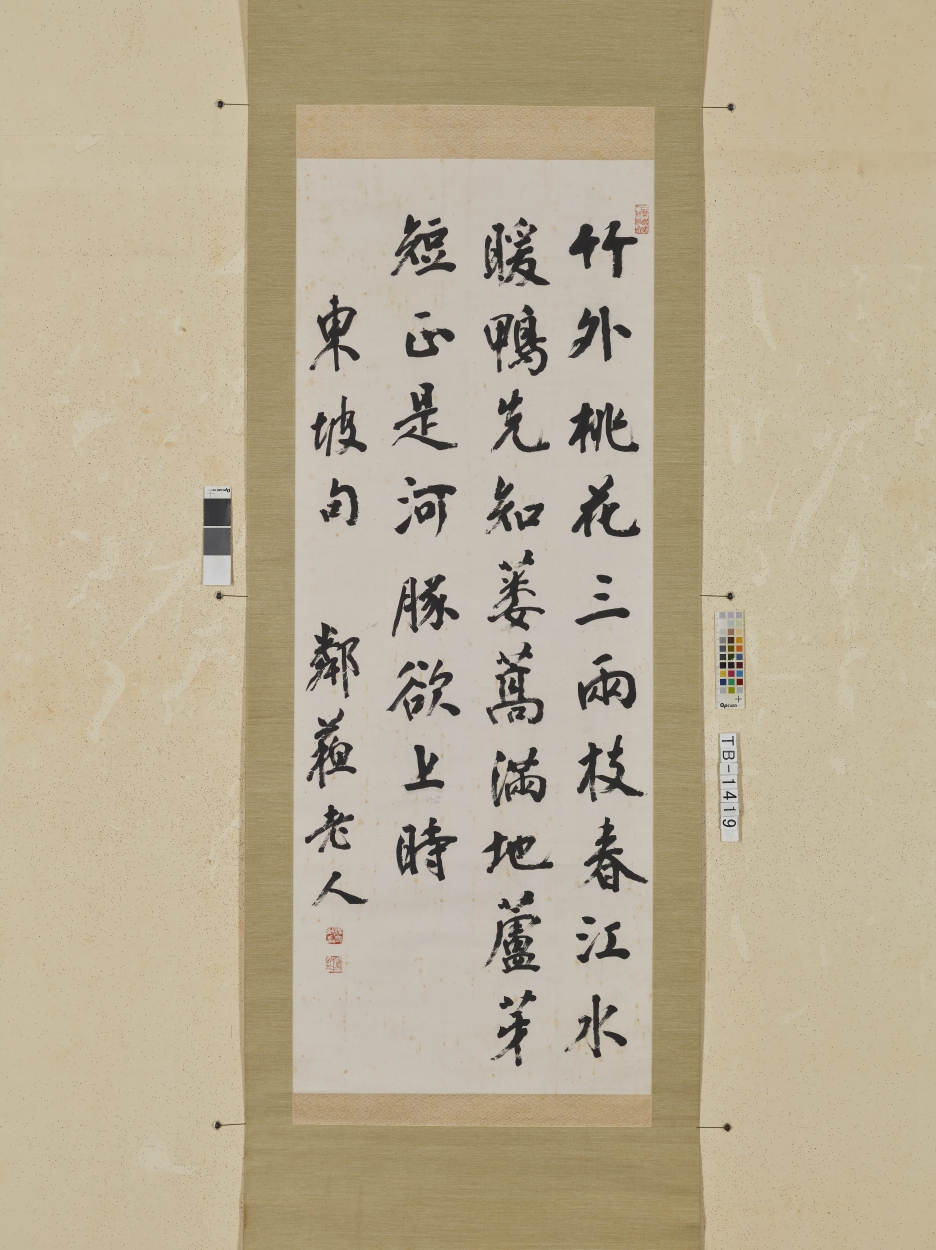 竹外桃花三兩枝春江水
暖鴨先知蔞蒿滿地蘆芽
短正是河豚欲上時
東坡句 鄰蘓老人
TB-1419